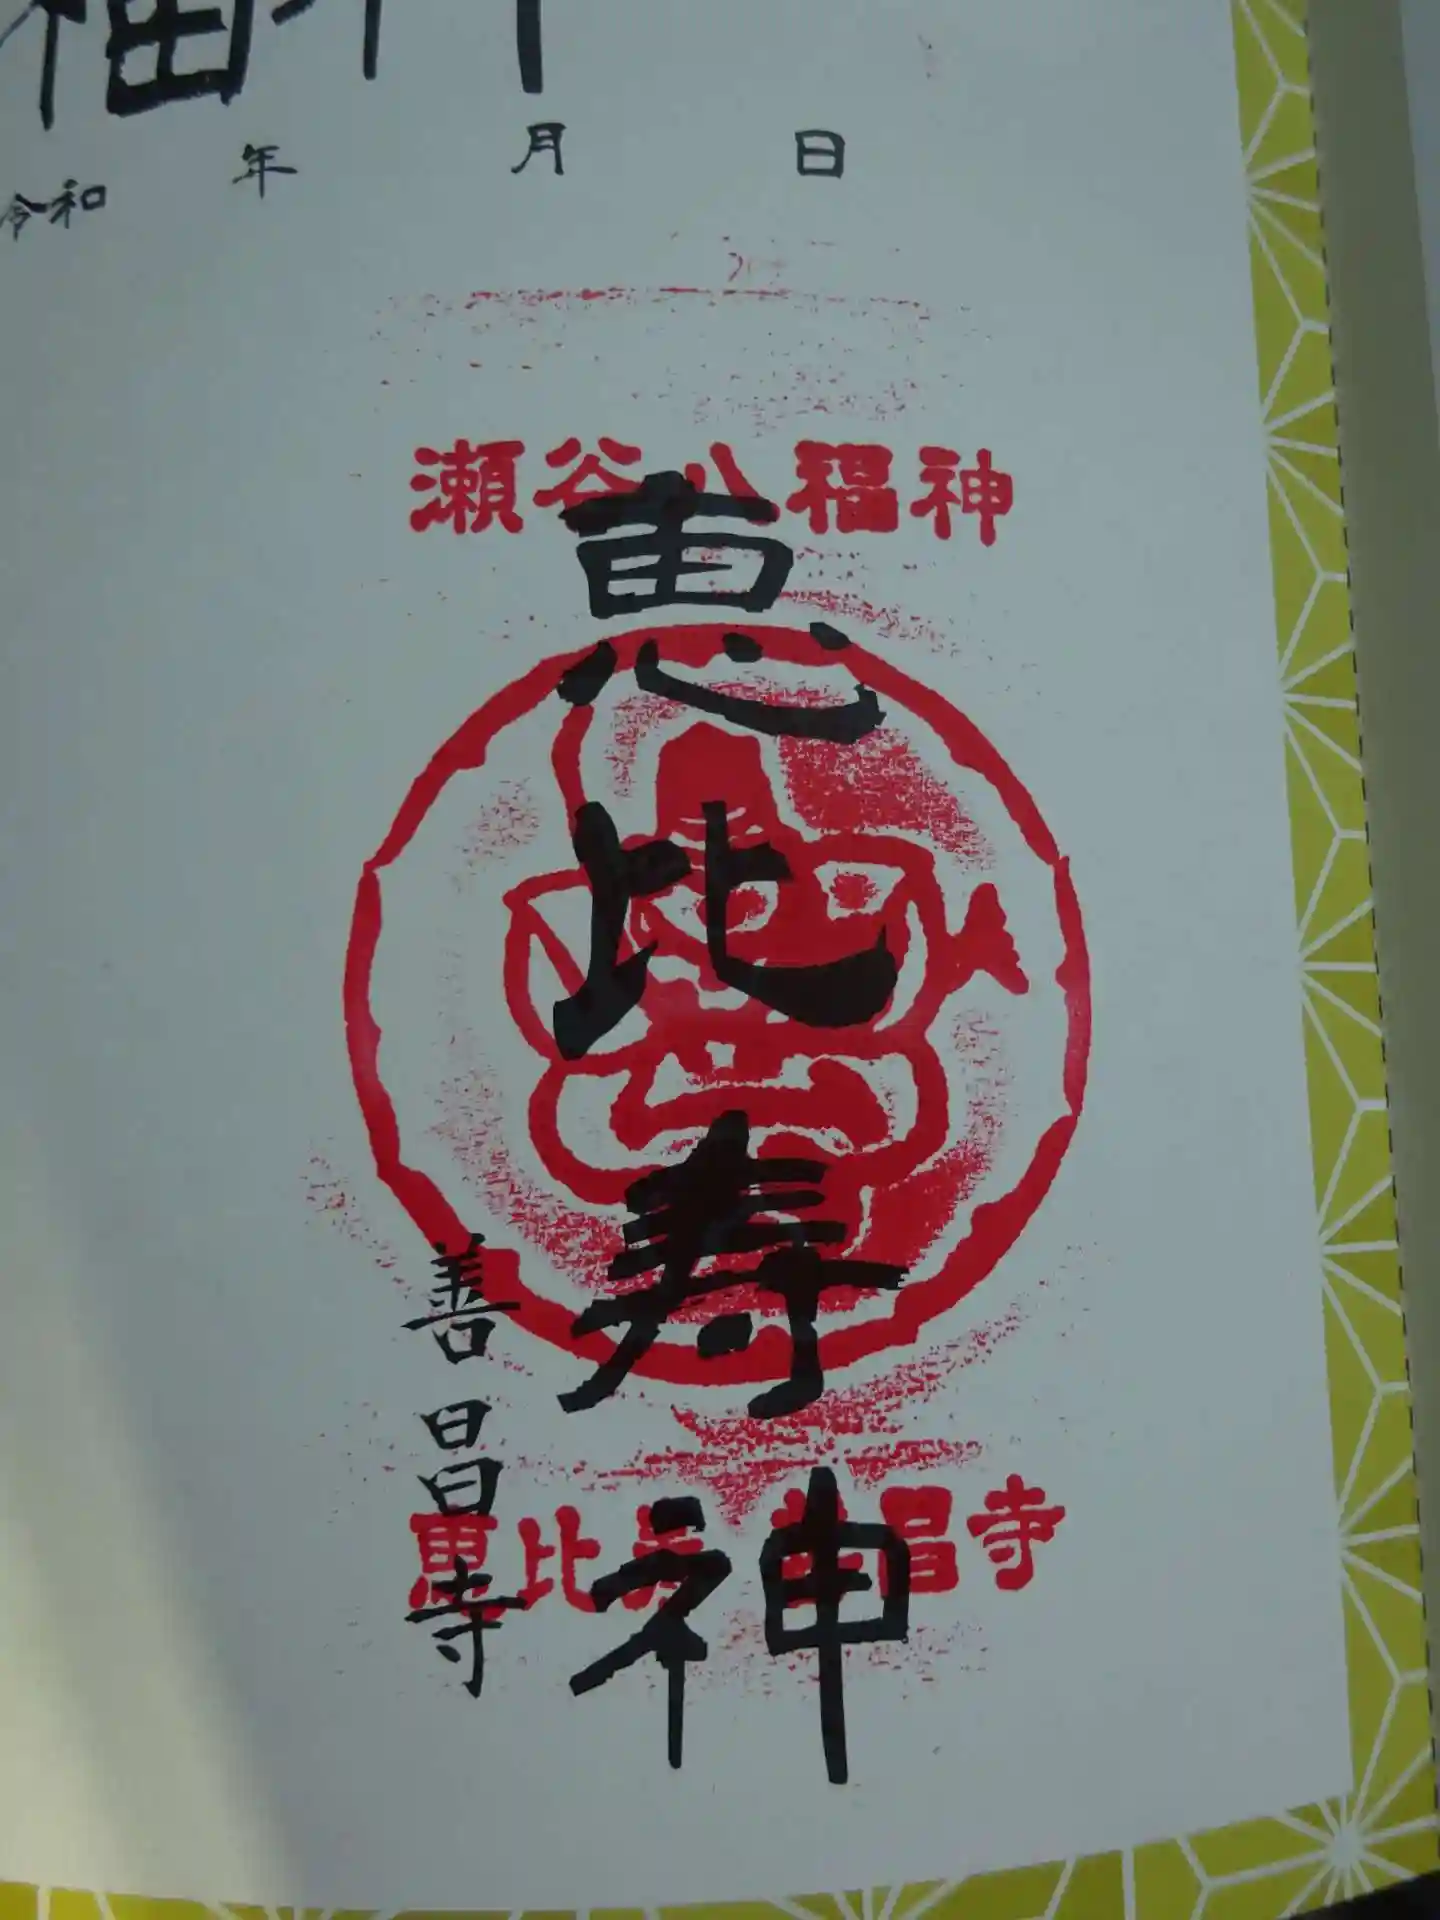 福神
令和 年 月 日
瀬谷八福神
恵比寿神
善昌寺
恵比寿 善昌寺